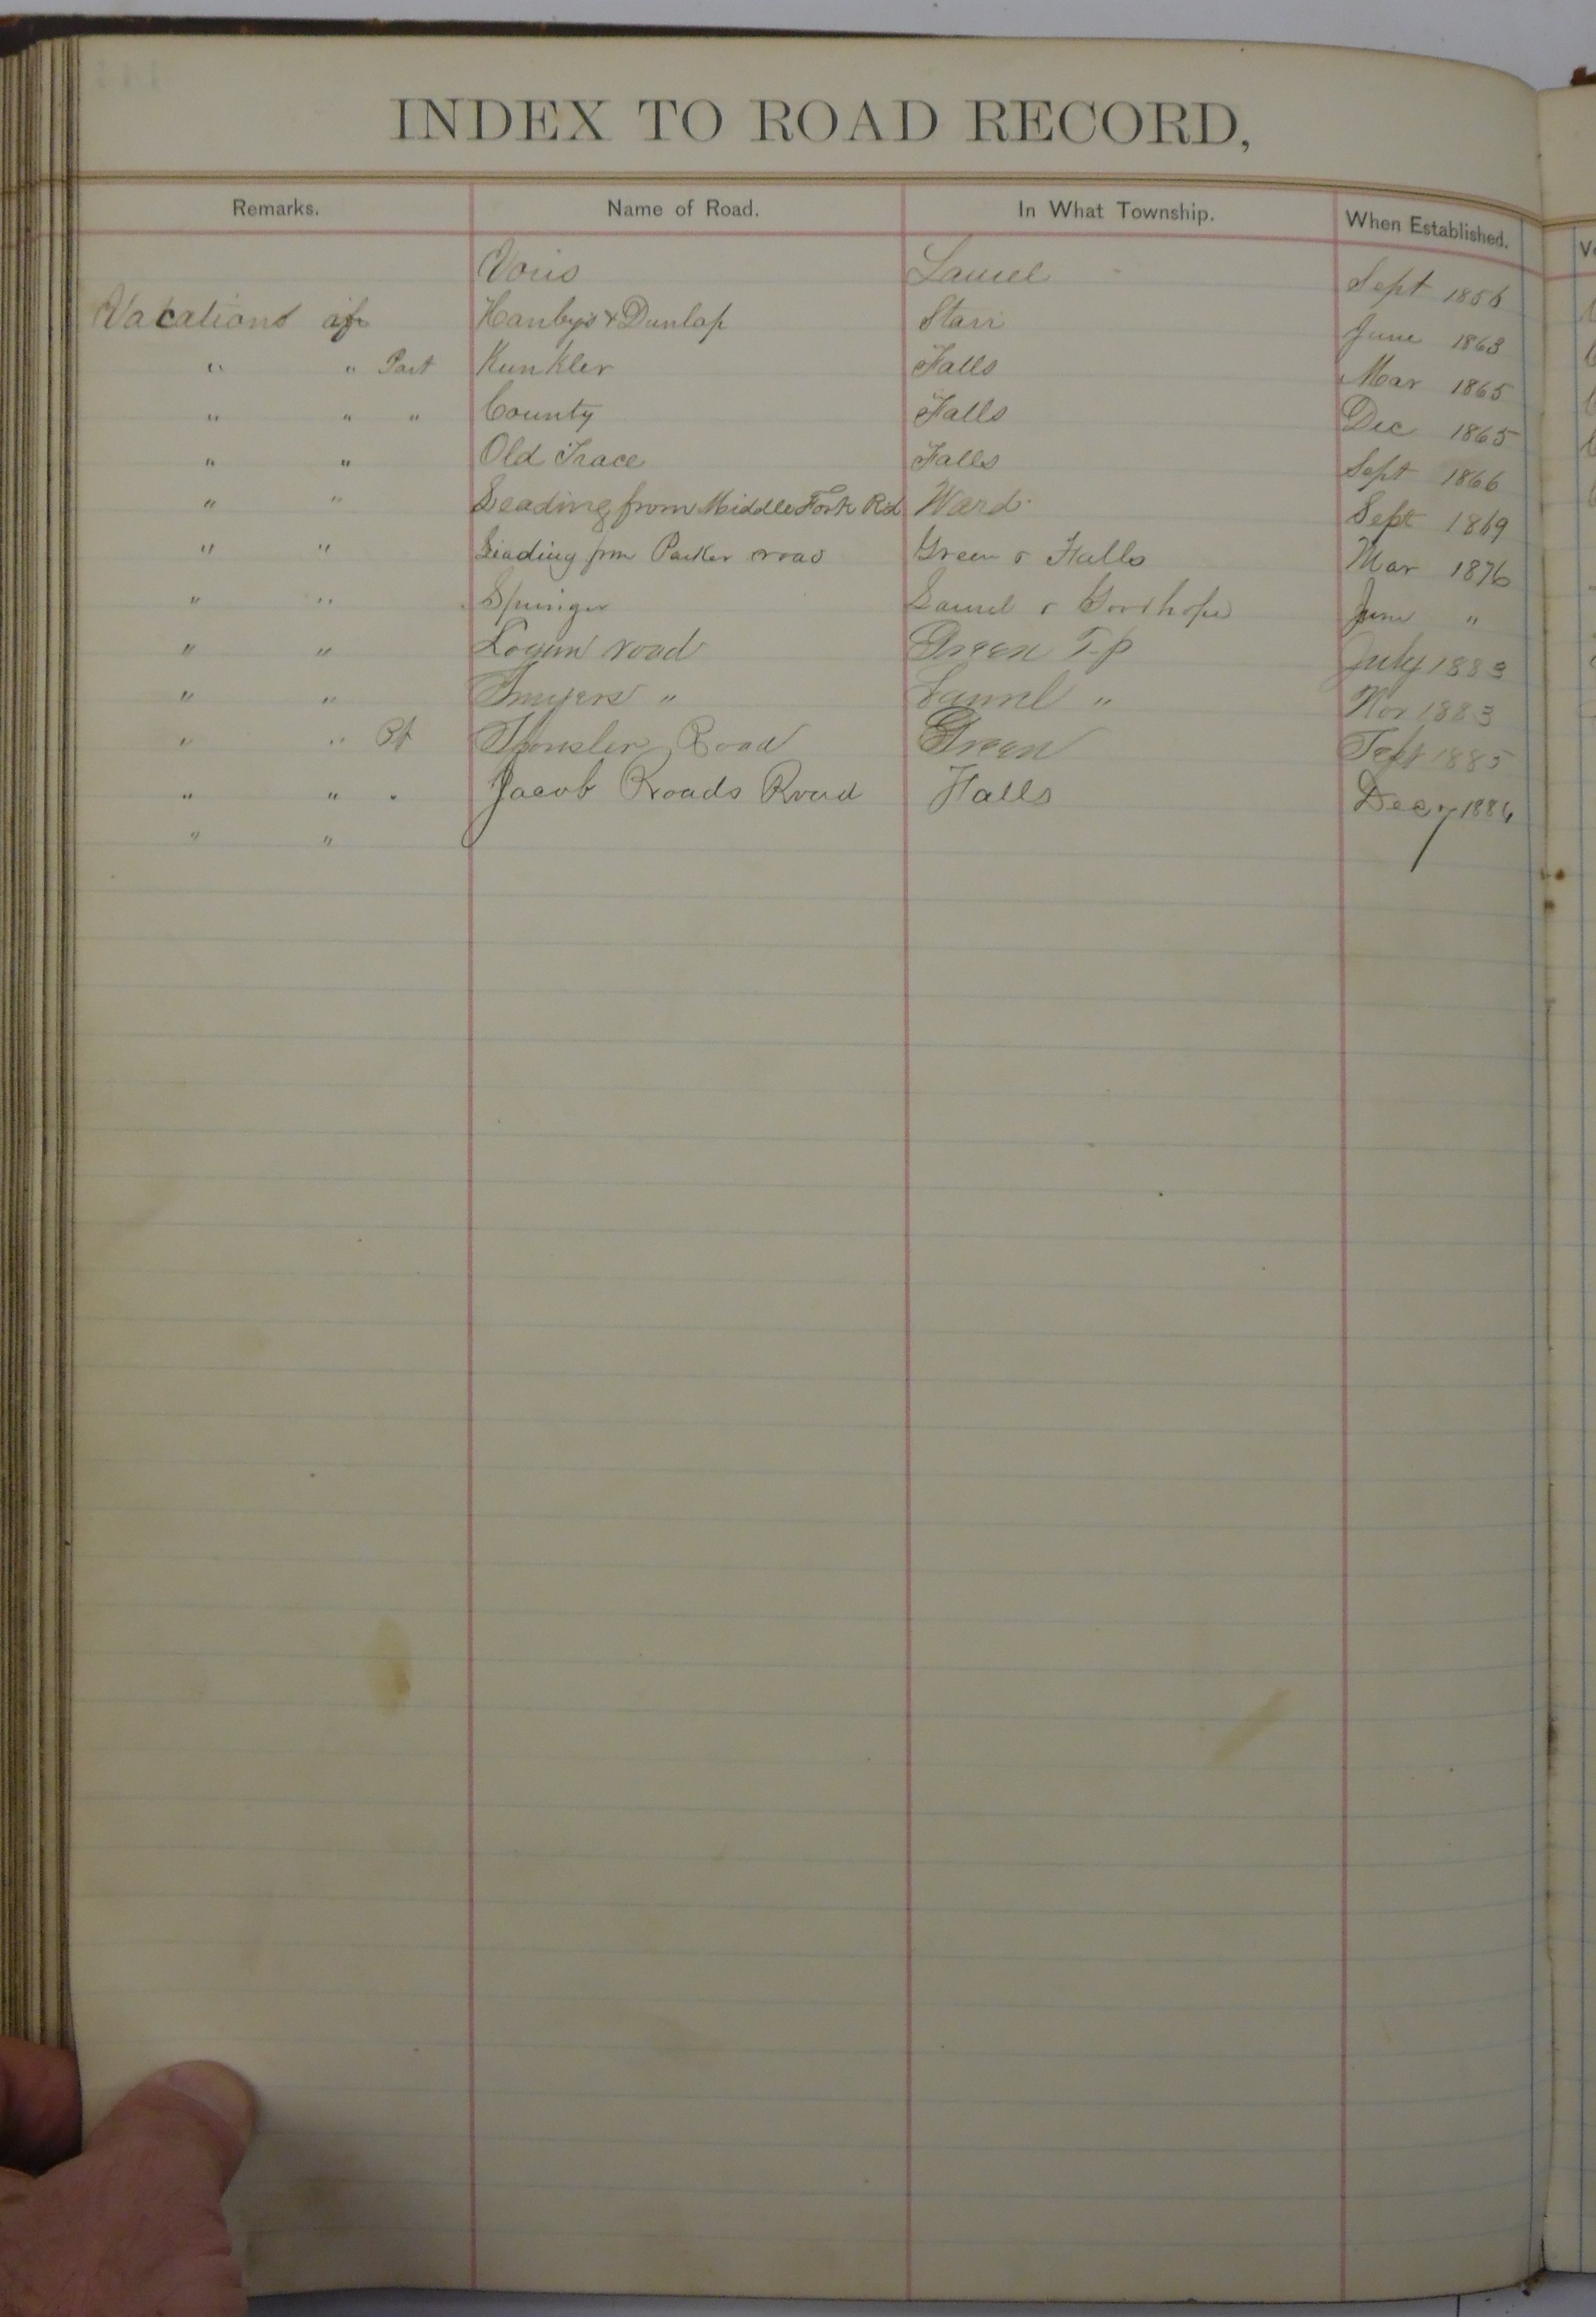 INDEX TO ROAD RECORD,
Remarks. Name of Road. In What Township. When Established.
Voris Laurel Sept 1856
Vacations of Hanbys & Dunlap Starr June 1863
" " Part Kunkler Falls Mar 1865
" " " County Falls Dec 1865
" " Old Trace Falls Sept 1866
" " Leading from Middle Fork Rd Ward Sept 1869
" " Leading frm Parker road Green & Falls Mar 1876
" " Springer Laurel & Goodhope June "
" " Logan road Green Tp July 1883
" " " Laurel " Nov 1883
" " Pt Road Green Sept 1885
" " " Jacob Roads Road Falls Decr 1886
" "